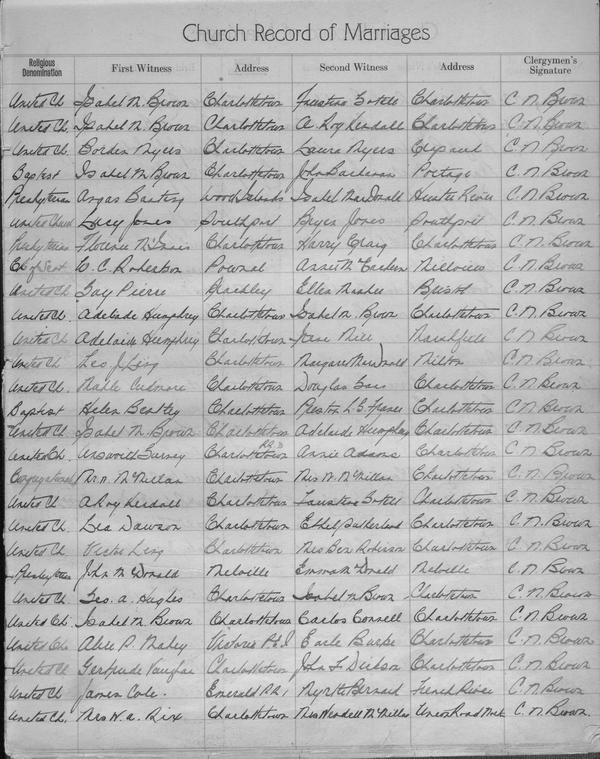 Church Record of Marriages
Religious Denomination First Witness Address Second Witness Address Clergymen's Signature
United Ch Isabel M. Brown Charlottetown Faustina Charlottetown C. M. Brown
United Ch. Isabel M. Brown Charlottetown A. Roy Kendall Charlottetown C. M. Brown
United Ch. Borden Myers Charlottetown Laura Myers C. M. Brown
Baptist Isabel M. Brown Charlottetown John Portage C. M. Brown
Presbyterian Angus Wood Islands Isabel MacDonald Hunter River C. M. Brown
United Church Lucy Jones Southport Jones Southport C. M. Brown
Presbyterian Florence Charlottetown Harry Craig Charlottetown C. M. Brown
Ch of Scot W. C. Robertson Pownal Annie C. M. Brown
United Ch Gay Pierre Brackley Ella C. M. Brown
United Ch. Adelaide Humphrey Charlottetown Isabel M. Brown Charlottetown C. M. Brown
United Ch Adelaide Humphrey Charlottetown Marshfield C. M. Brown
United Ch Leo J. Ling Charlottetown Margaret MacDonald Milton C. M. Brown
United Ch. Charlottetown Douglas Charlottetown C. M. Brown
Baptist Helen Charlottetown Charlottetown C. M. Brown
United Ch Isabel M. Brown Charlottetown Adelaide Humphrey Charlottetown C. M. Brown
United Ch. Charlottetown Annie Adams Charlottetown C. M. Brown
Congregational McMillan Charlottetown Mrs McMillan Charlottetown C. M. Brown
United Ch A Roy Kendall Charlottetown Faustina Charlottetown C. M. Brown
United Ch. Lea Dawson Charlottetown Ethel Sutherland Charlottetown C. M. Brown
United Ch Ling Charlottetown Mrs Ben Robinson Charlottetown C. M. Brown
Presbyterian John McDonald Melville Emma McDonald Melville C. M. Brown
United Ch Geo. A. Hughes Charlottetown Isabel M Brown Charlottetown C. M. Brown
United Ch. Isabel M. Brown Charlottetown Carlos Charlottetown C. M. Brown
United Ch. P. Victoria P.E.I Earle Burke Charlottetown C. M. Brown
United Ch Gertrude Charlottetown John F. Charlottetown C. M. Brown
United Ch James Cole. Emerald R.R.1 Myrtle Bernard French River C. M. Brown
United Ch. Mrs W. A. Rix Charlottetown Mrs Wendell McMillan Union Road C. M. Brown